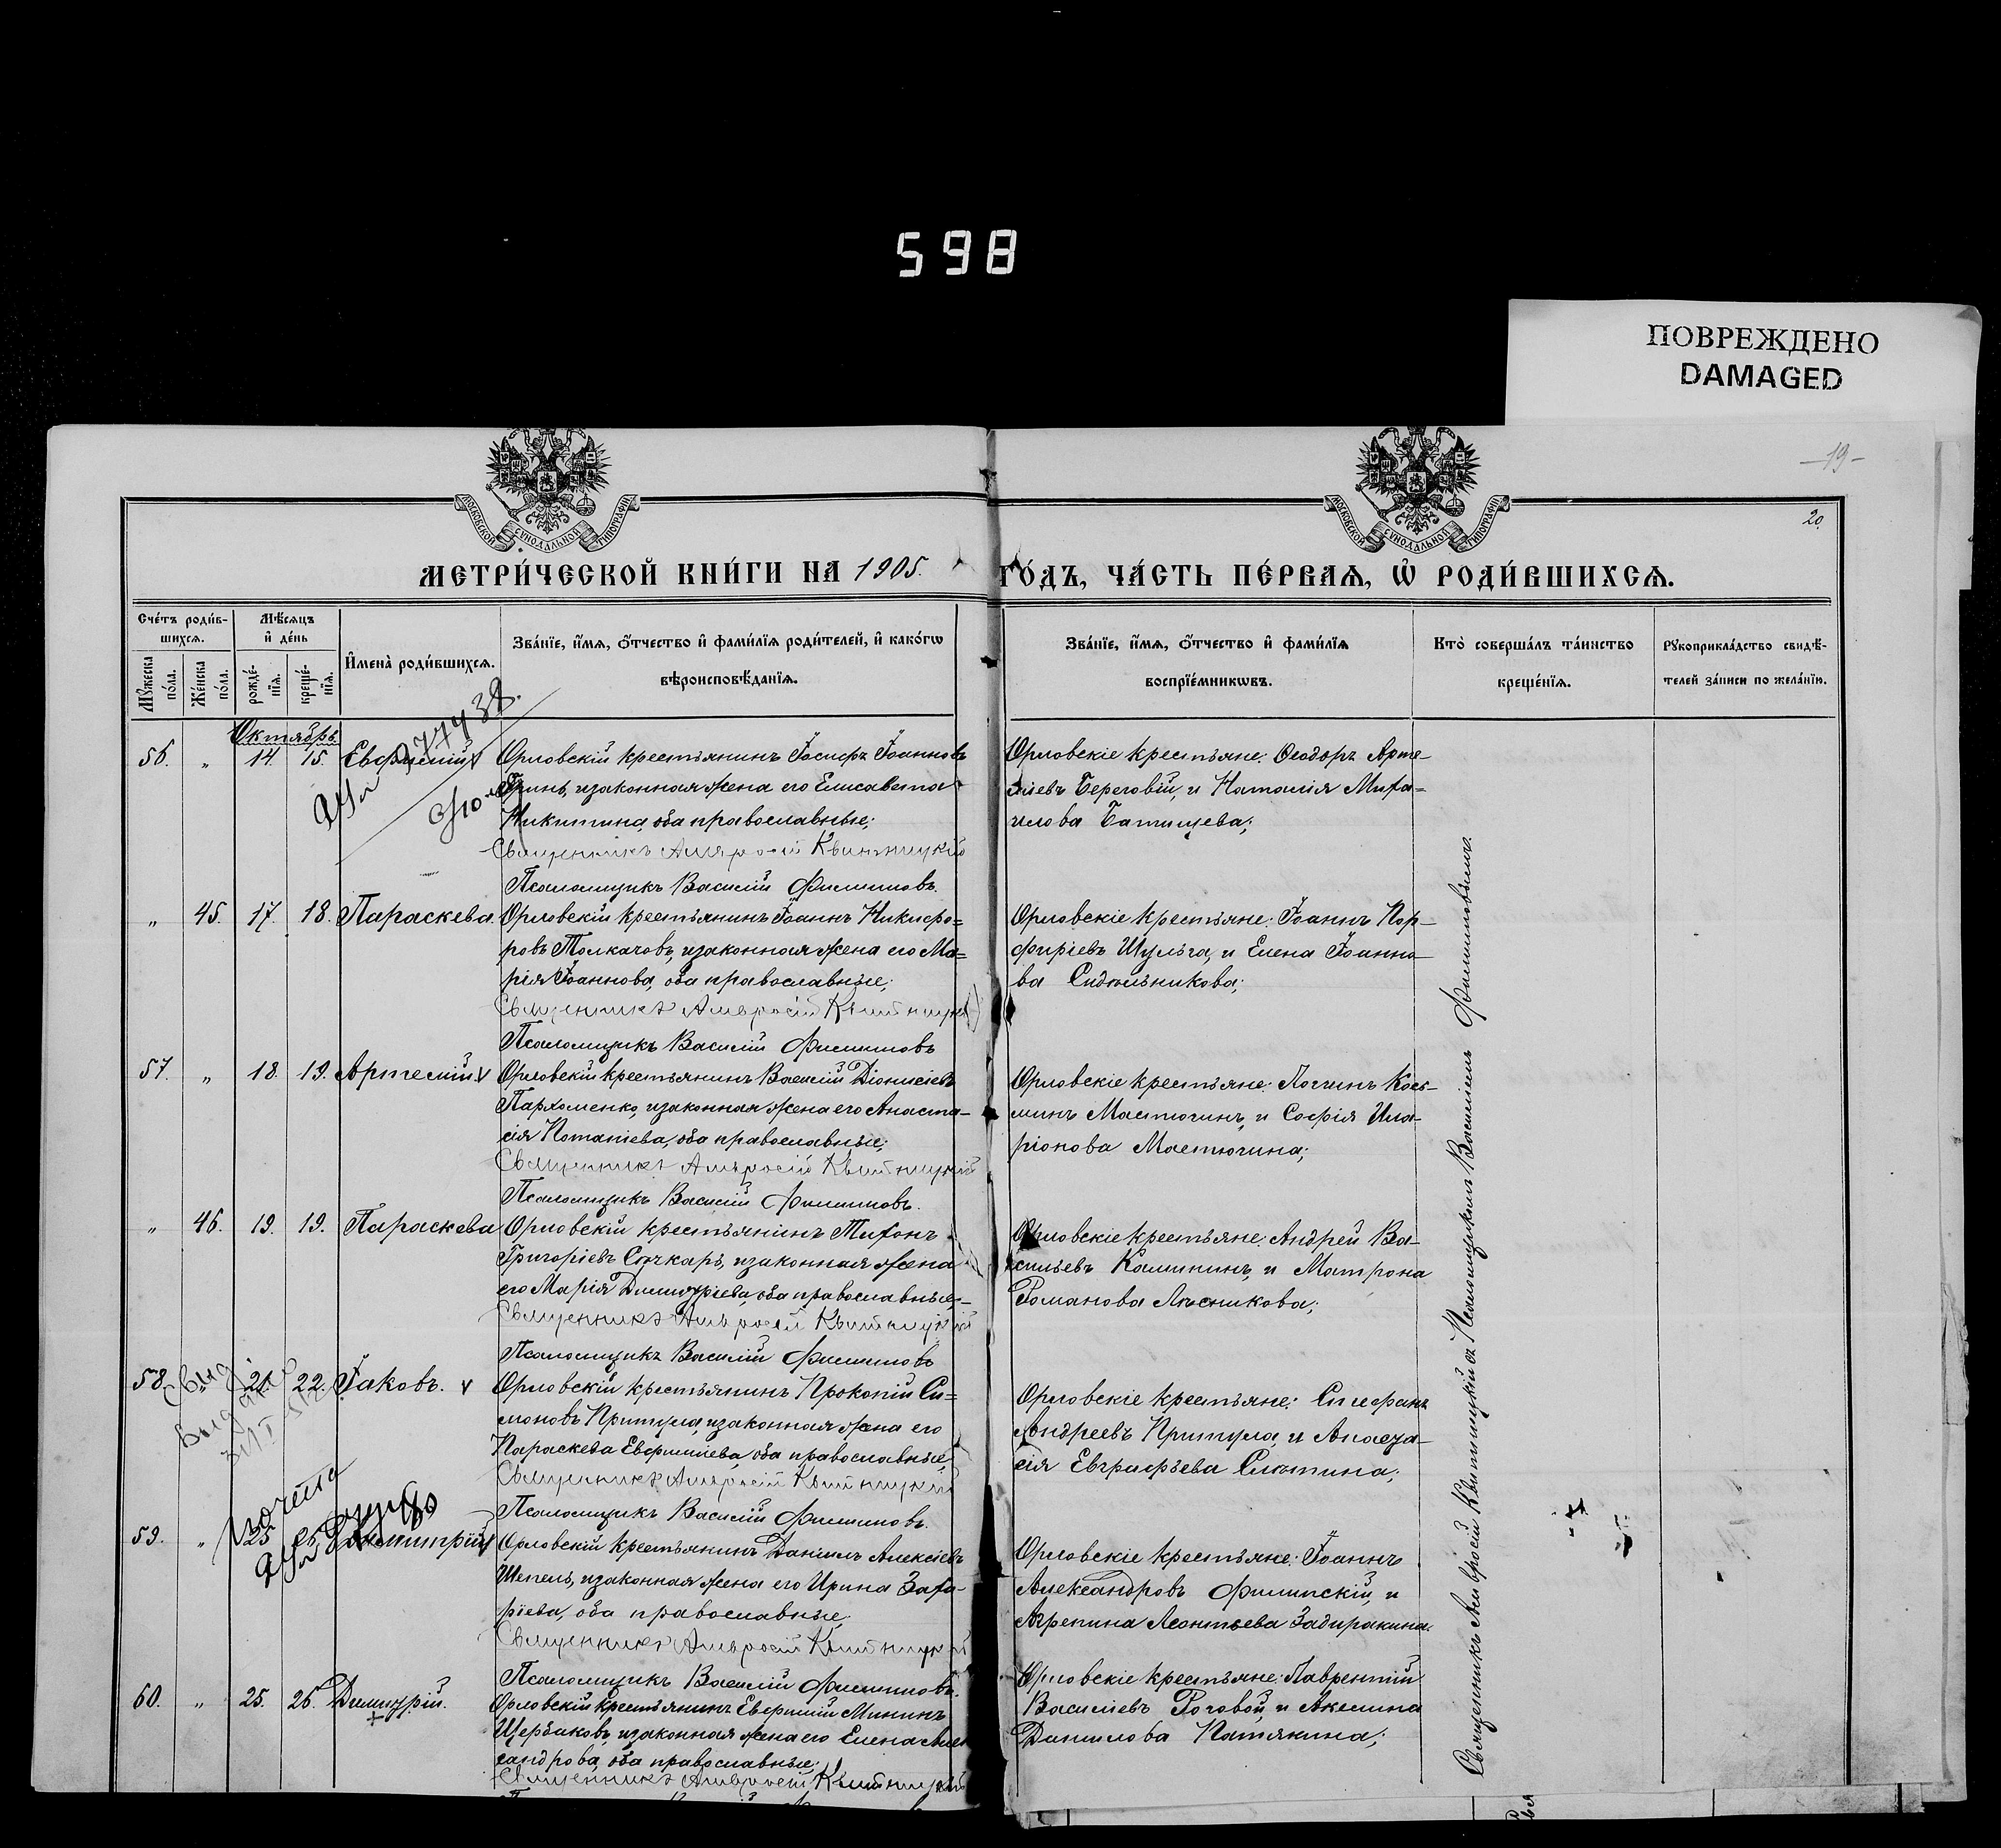 598
ПОВРЕЖДЕНО
DAMAGED
-19-
20.
МОСКОВСКОЙ СУНОДАЛЬНОЙ ТИПОГРАФІИ
МОСКОВСКОЙ СУНОДАЛЬНОЙ ТИПОГРАФІИ
МЕТРИ́ЧЕСКОЙ КНИ́ГИ НА 1905. ГО́ДЪ, ЧА́СТЬ ПЕ́РВАѦ, Ѡ҆ РОДИ́ВШИХСѦ.
Сче́тъ роди́в-
шихсѧ.
Мѣ́сѧцъ
и҆ де́нь
Мꙋ́жеска
по́ла.
Же́нска
по́ла.
рожде́-
нїѧ.
креще́-
нїѧ.
И҆мена̀ роди́вшихсѧ.
Зва́нїе, и҆́мѧ, ѻ҆́тчество и҆ фами́лїѧ роди́телей, и҆ како́гѡ
вѣроисповѣ́данїѧ.
Зва́нїе, и҆́мѧ, ѻ҆́тчество и҆ фами́лїѧ
воспрїе́мникѡвъ.
Кто̀ соверша́лъ та́инство
креще́нїѧ.
Рꙋкоприкла́дство свидѣ́-
телей за́писи по жела́нїю.
Октябрь.
56. " 14. 15. Евфимій Орловскій крестьянинъ Іосифъ Іоанновъ
Гринь, и законная жена его Елисавета
Никитина, оба православные;
Священникъ Амвросій Квитницкій
Псаломщикъ Василій Филипповъ.
Орловскіе крестьяне: Ѳеодоръ Арте-
міевъ Береговій, и Наталія Миха-
илова Батищева;
" 45. 17. 18. Параскева. Орловскій крестьянинъ Іоаннъ Никифо-
ровъ Толкачовъ, и законная жена его Ма-
рія Іоаннова, оба православные;
Священникъ Амвросій Квитницкій
Псаломщикъ Василій Филипповъ
Орловскіе крестьяне: Іоаннъ Пор-
фиріевъ Шульга, и Елена Іоанно-
ва Сидельникова;
57. " 18. 19. Артемій. V Орловскій крестьянинъ Василій Діонисіевъ
Пархоменко, и законная жена его Анаста-
сія Потапіева, оба православные;
Священникъ Амвросій Квитницкій
Псаломщикъ Василій Филипповъ.
Орловскіе крестьяне: Логгинъ Кось-
минъ Мастюгинъ, и Софія Ила-
ріонова Мастюгина;
" 46. 19. 19. Параскева Орловскій крестьянинъ Тихонъ
Григоріевъ Сочкарь, и законная жена
его Марія Димитріева, оба православные;
Священникъ Амвросій Квитницкій
Псаломщикъ Василій Филипповъ
Орловскіе крестьяне: Андрей Ва-
сильевъ Калининъ, и Матрона
Романова Лѣсникова;
58. " 21. 22. Іаковъ. V Орловскій крестьянинъ Прокопій Си-
моновъ Притула, и законная жена его
Параскева Евфиміева, оба православные;
Священникъ Амвросій Квитницкій
Псаломщикъ Василій Филипповъ.
Орловскіе крестьяне:
Андреевъ Притула, и Анаста-
сія Евграфьева
59. " 25 Димитрій V Орловскій крестьянинъ Даніилъ Алексіевъ
Шепель, и законная жена его Ирина Заха-
ріева, оба православные.
Священникъ Амвросій Квитницкій
Псаломщикъ Василій Филипповъ.
Орловскіе крестьяне: Іоаннъ
Александровъ Филипскій, и
Агрепина Леонтьева Задиракина.
60. " 25. 26. Димитрій. Орловскій крестьянинъ Евфимій Мининъ
Щербаковъ, и законная жена его Елена Алек
сандрова, оба православные;
Священникъ Амвросій Квитницкій
Орловскіе крестьяне: Лаврентій
Василіевъ Роговой, и Акелина
Данилова Патякина;
Священникъ Амвросій Квитницкій съ Псаломщикомъ Василіемъ Филипповымъ.